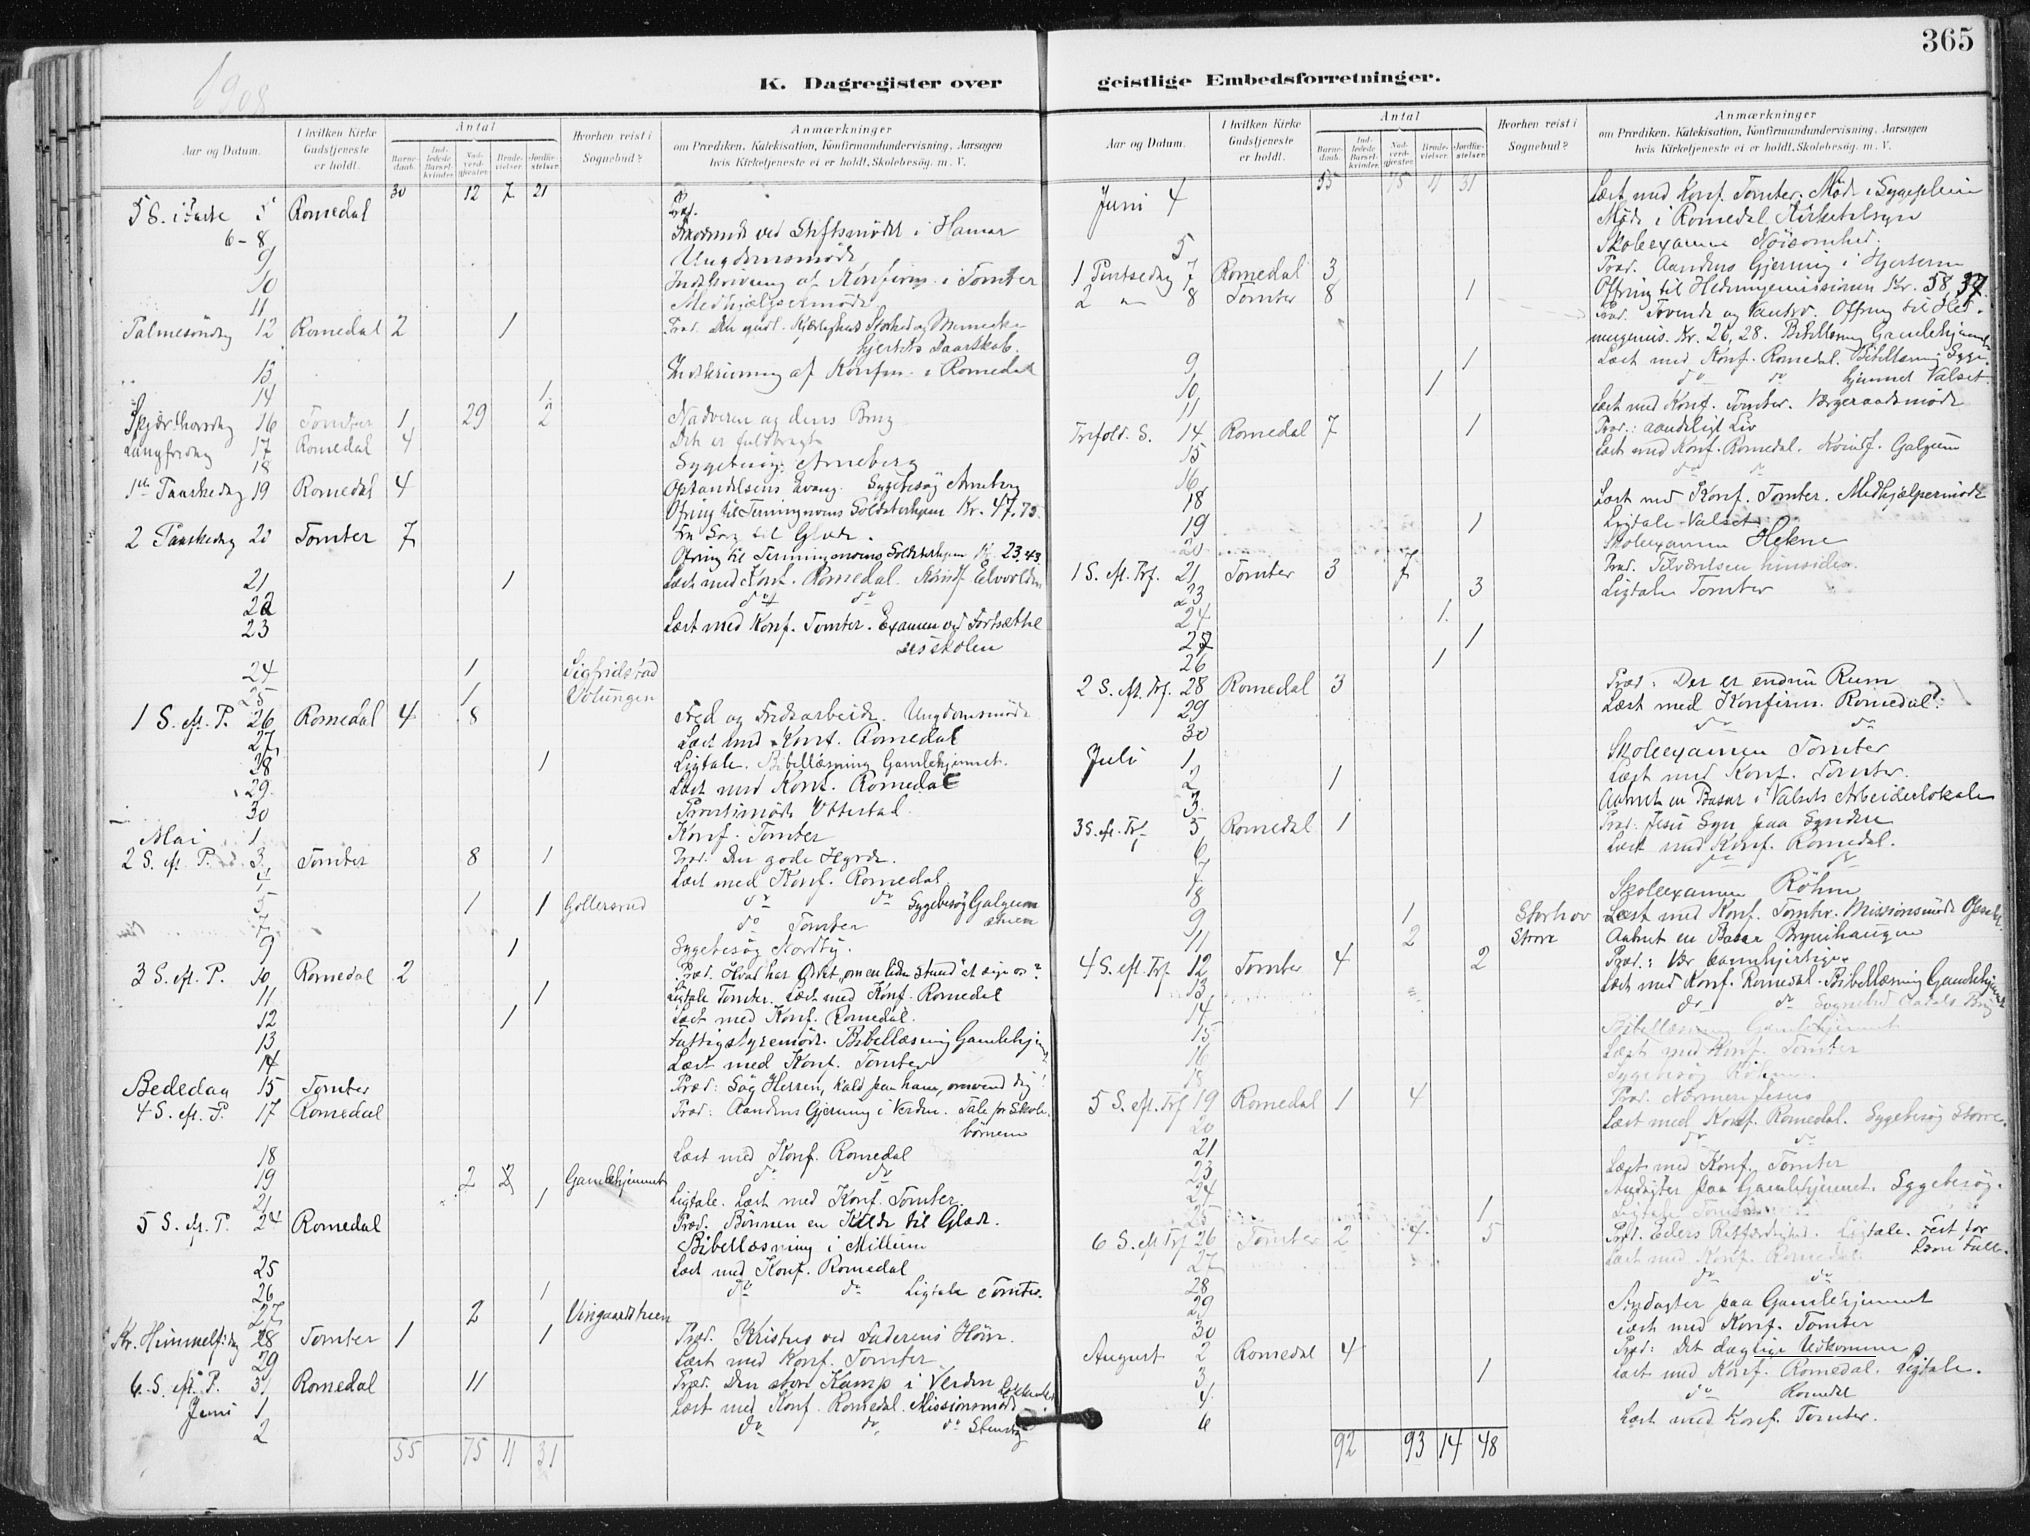 365
1908
K. Dagregister over
Aar og Datum.
I hvilken Kirke Gudstjeneste er holdt.
Antal
Barnedaab.
Indledede Barselkvinder.
Nadverdgjester.
Brudevielser.
Jordfæstelser.
Hvorhen reist i Sognebud?
Anmærkninger
om Prædiken, Katekisation, Konfirmandundervisning, Aarsagen
hvis Kirketjeneste ei er holdt, Skolebesøg. m. V.
30 12 7 21
5 S. i Faste 5 Romedal Præd.
6-8 ved Stiftsmödet i Hamar
9 Ungdomsmöde
10 Indskrivning af Konfirm. i Tomter
11 Medhjælpermöde
Palmesöndag 12 Romedal 2 1 Præd. Den gudl. Kjærligheds Storhed og Menneske
hjertets Daarskab.
13 Indskrivning af Konfirm. i Romedal
14 1
Skjærthorsdag 16 Tomter 1 29 2 Nadveren og dens Brug
Langfredag 17 Romedal 4 Det er fuldbragt
18 Sygebesøg Arneberg
1ste Paaskedag 19 Romedal 4 Opstandelsens Evang. Sygebesøg Arneberg
Ofring til Terningmoens Soldaterhjem Kr. 47.75.
2 Paaskedag 20 Tomter 7 Fra Sorg til Glæde.
Ofring til Terningmoens Soldaterhjem Kr. 23,43
21 1 Læst med Konf. Romedal.
22 do do
23 Læst med Konf. Tomter. Examen ved Fortsættel
sesskolen
24 1 Sigfridsrød
25 1 Volungen
1 S. eft. P. 26 Romedal 4 8 Fred og Fredsarbeide. Ungdomsmöde
27 Læst med Konf. Romedal
28 1 Ligtale. Bibellæsning Gamlehjemmet.
29 Læst med Konf. Romedal
30 Provstimöde Ottestad.
Mai 1 Konf. Tomter
2 S. eft. P. 3 Tomter 8 1 Præd. Den gode Hyrde.
4 Læst med Konf. Romedal
5 1 1 Gillersrud do do Sygebesøg Galgum
7 do Tomter
9 1 Sygebesøg Nordby.
3 S. eft. P. 10 Romedal 2 Præd. Hvad har Ordet "om en liden stund" at sige os?
11 1 Ligtale Tomter. Læst med Konf. Romedal
12 1 Læst med Konf. Romedal.
13 Fattigstyremöde. Bibellæsning Gamlehjemmet
14 Læst med Konf. Tomter
Bededag 15 Tomter Præd: Søg Herren, kald paa ham, omvend dig!
4 S. eft. P. 17 Romedal Præd: Aandens Gjerning i Verden. Tale for Skole-
börnene
18 Læst med Konf. Romedal
19 2 2 Gamlehjemmet do do
21 1 Ligtale. Læst med Konf. Tomter.
5 S. eft. P. 24 Romedal Præd. Bönnen en Kilde til Glæde.
Bibellæsning i Millum
25 Læst med Konf. Romedal
26 1 do do Ligtale Tomter.
27 2 Vingaardstuen
Kr. Himmelf.dag 28 Tomter 1 1 Præd. Kristus ved Faderens Höire.
29 Læst med Konf. Tomter
6 S. eft. P. 31 Romedal 11 Præd. Den store Kamp i Verden
Juni 1 Læst med Konf. Romedal. Missionsmöde
2 do do do Stensby
55 75 11 31
geistlige Embedsforretninger.
Aar og Datum.
I hvilken Kirke Gudstjeneste er holdt.
Antal
Barnedaab.
Indledede Barselkvinder.
Nadverdgjester.
Brudevielser.
Jordfæstelser.
Hvorhen reist i Sognebud?
Anmærkninger
om Prædiken, Katekisation, Konfirmandundervisning, Aarsagen
hvis Kirketjeneste ei er holdt, Skolebesøg. m. V.
55 75 11 31
Juni 4 Læst med Konf. Tomter. Möde i Sygepleie
Möde i Romedal Kirketilsyn
5 Skoleexamen Nöisomhed.
1 Pintsedag 7 Romedal 3 Præd. Aandens Gjerning i Hjerterne
Ofring til Hedningemissionen Kr. 58,37.
2 " 8 Tomter 8 1 Præd. Troende og Vantro. Offring til Hed-
ningemis. Kr. 26,28. Bibellæsning Gamlehjemmet
9 1 Læst med Konf. Romedal. Bibellæsning Syge-
10 1 do do hjemmet Valset.
11 Læst med Konf. Tomter. Værgeraadsmöde
Trefold. S. 14 Romedal 7 1 Præd.: aandeligt Liv
15 Læst med Konf. Romedal. Kvindf. Galgum
16 do do
18 Læst med Konf. Tomter. Medhjælpermöde
19 1 Ligtale Valset
20 Skoleexamen Hekne
1 S. eft. Trf. 21 Tomter 3 7 Præd. Tilværelsen hinsides.
23 3 Ligtale Tomter
24 1
1
26 1
2 S. eft. Trf. 28 Romedal 3 Præd: Der er endnu Rum
29 Læst med Konfirm. Romedal.
30 do do
Juli 1 Skoleexamen Tomter
2 1 Læst med Konf. Tomter.
3 Aabnet en Basar i Valsets Arbeiderlokale
3 S. eft. Trf. 5 Romedal 1 Præd. Jesu Syn paa Syndere
6 Læst med Konf. Romedal.
7 do do
8 Skoleexamen Röhne
9 1 Storhov Læst med Konf. Tomter. Missionsmöde
11 2 Storre Aabnet en Basar Brynihaugen
4 S. eft. Trf. 12 Tomter 4 2 Præd.: Vær barmhjertige
13 Læst med Konf. Romedal. Bibellæsning Gamlehjemmet
14 do do Sognebud Aadals Brug
15 Bibellæsning Gamlehjemmet
16 Læst med Konf. Tomter
18 Sygebesøg Röhne.
5 S. eft. Trf. 19 Romedal 1 4 Præd. Nærmere Jesus
20 Læst med Konf. Romedal. Sygebesøg Storre.
21 do do
23 Læst med Konf. Tomter
24 Andagter paa Gamlehjemmet. Sygebesøg.
25 1 Ligtale Tomter
6 S. eft. Trf. 26 Tomter 2 4 5 Præd. Eders Retfærdighed. Ligtale. Fest for
27 Læst med Konf. Romedal
28 do do
29 Andagter paa Gamlehjemmet
30 Læst med Konf. Tomter
August 2 Romedal 4 Præd: Det daglige Udkomme
3 1 Læst med Konf. Romedal. Ligtale.
4 do Romedal
6 Læst med Konf. Tomter.
92 93 14 48